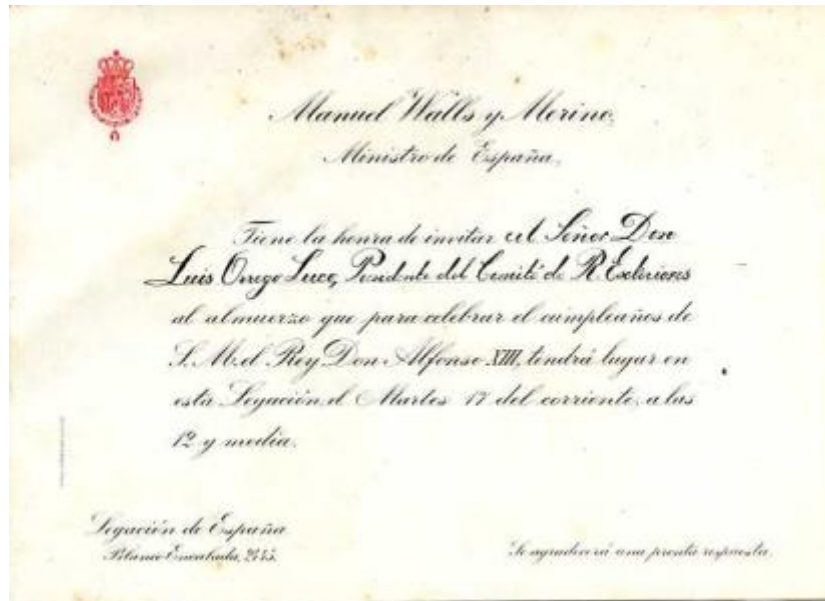 Manuel Walls y Merino,
Ministro de España,
Tiene la honra de invitar al Señor Don
Luis Orrego Luco, Presidente del Comité de R. Exteriores
al almuerzo que para celebrar el cumpleaños de
S. M. el Rey Don Alfonso XIII, tendrá lugar en
esta Legación, el Martes 17 del corriente, a las
12 y media.
Legación de España
Blanco Encalada,
Se agradecerá una pronta respuesta.